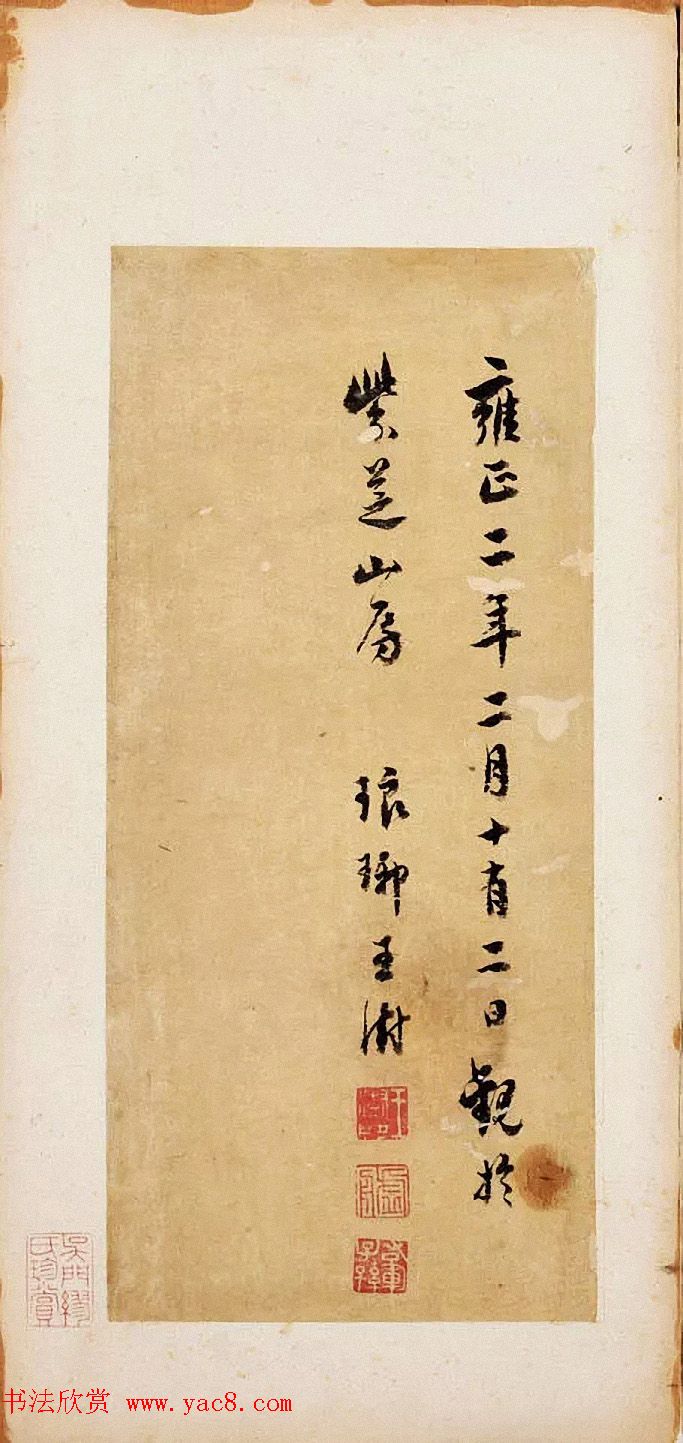 雍正二年二月十有二日觀於
紫芝山房 琅琊王澍
吳門繆氏珍賞
书法欣赏 www.yac8.com